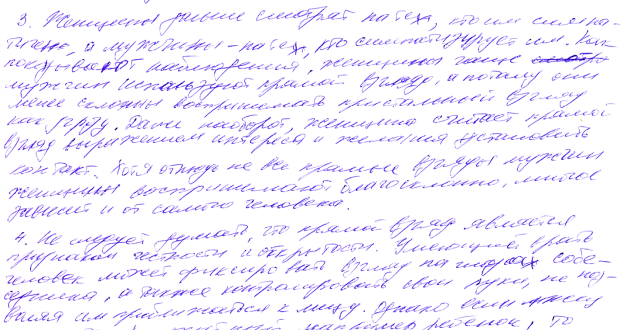 3. Женщины дольше смотрят на тех, кто им симпа-
тичен, а мужчины - на тех, кто симпатизирует им. Как
показывают наблюдения, женщины чаще
мужчин используют прямой взгляд, а потому они
менее склонны воспринимать пристальный взгляд
как угрозу. Даже наоборот, женщина считает прямой
взгляд выражением интереса и желания установить
контакт. Хотя отнюдь не все прямые взгляды мужчин
женщины воспринимают благосклонно, многое
зависит и от самого человека.
4. Не следует думать, что прямой взгляд является
признаком честности и открытости. Умеющий врать
человек может фиксировать взгляд на глазах собе-
седника, а также контролировать свои руки, не поз-
воляя им приближаться к лицу. Однако если лжец
например ребенок, то